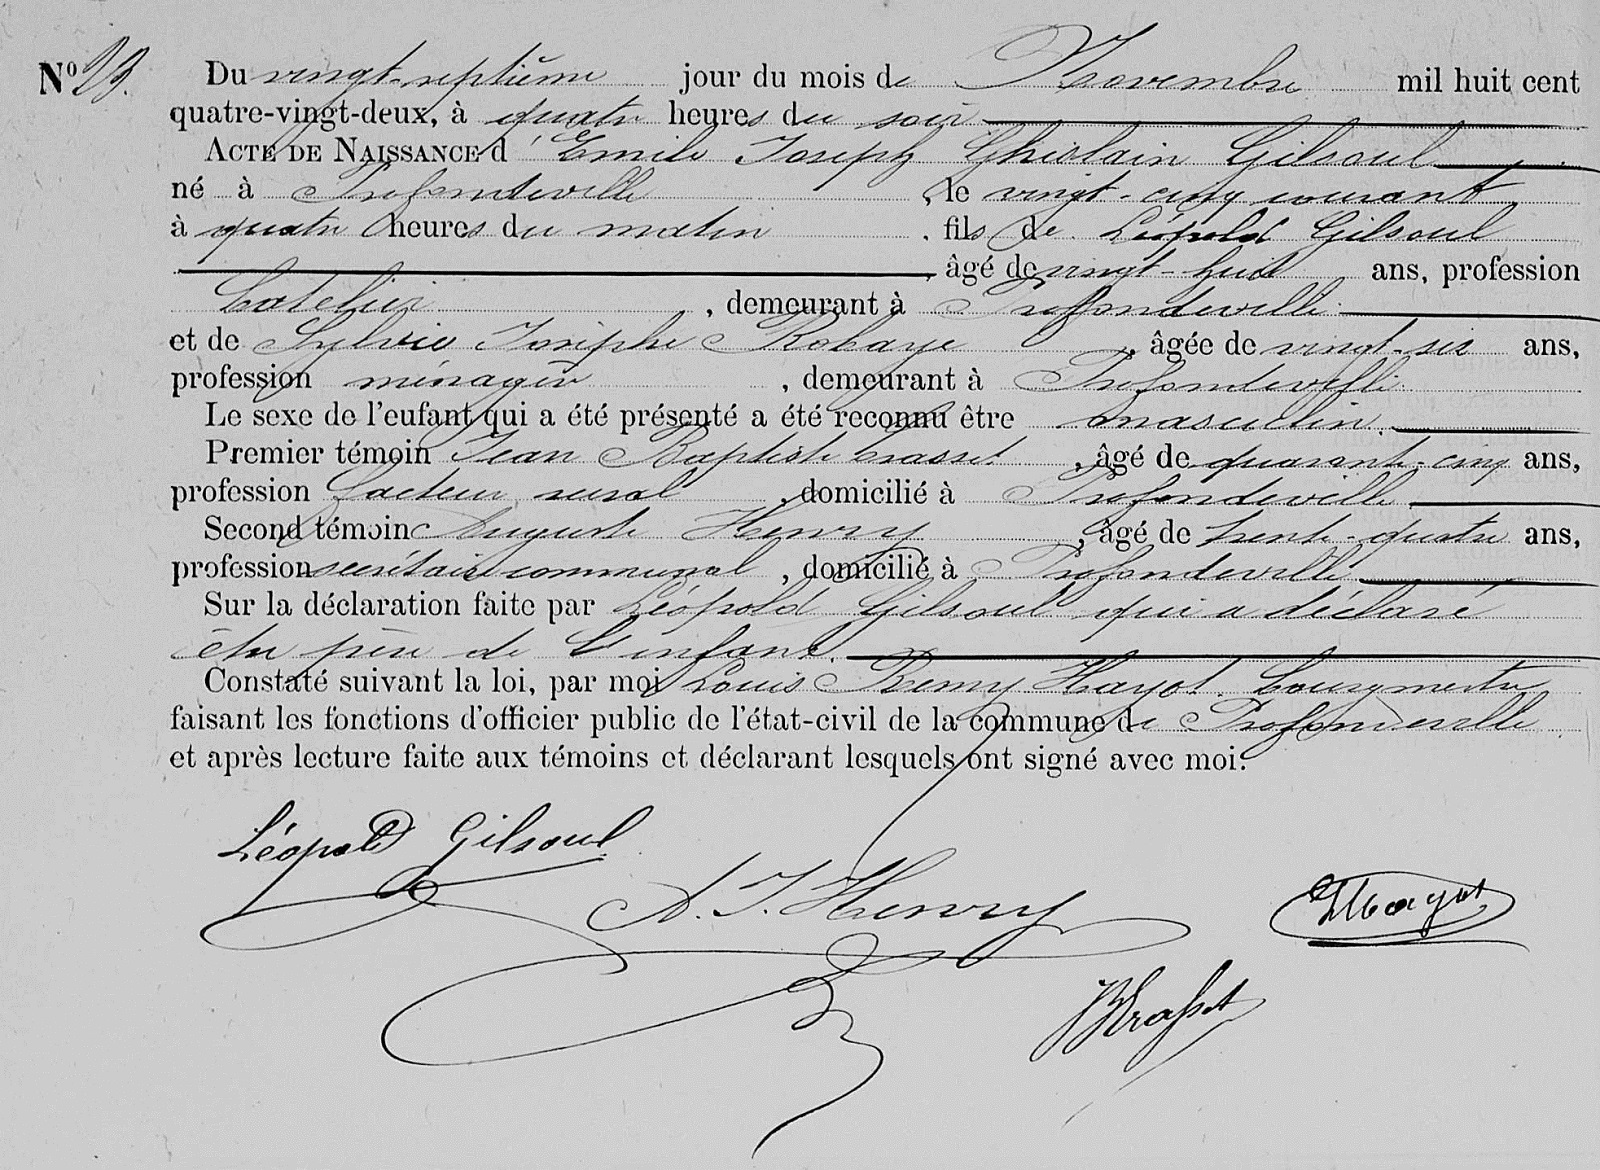 No 23. Du vingt-septième jour du mois de Novembre mil huit cent
quatre-vingt-deux, à quatre heures du soir
ACTE DE NAISSANCE d'Emile Joseph Ghislain Gilsoul
né à Profondeville, le vingt-cinq courant
à quatre heures du matin, fils de Léopold Gilsoul
âgé de vingt-huit ans, profession
Batelier, demeurant à Profondeville
et de Sylvie Josèphe Robaye, âgée de vingt-six ans,
profession ménagère, demeurant à Profondeville
Le sexe de l'eufant qui a été présenté a été reconnu être masculin.
Premier témoin Jean Baptiste Crasset, âgé de quarante-cinq ans,
profession facteur rural, domicilié à Profondeville
Second témoin Auguste Henry, âgé de trente-quatre ans,
profession secrétaire communal, domicilié à Profondeville
Sur la déclaration faite par Léopold Gilsoul qui a déclaré
être père de l'enfant.
Constaté suivant la loi, par moi Louis Remy Hayot. Bourgmestre
faisant les fonctions d'officier public de l'état-civil de la commune de Profondeville
et après lecture faite aux témoins et déclarant lesquels ont signé avec moi.
Léopold Gilsoul
A. J. Henry
Hayot
JBCrasset